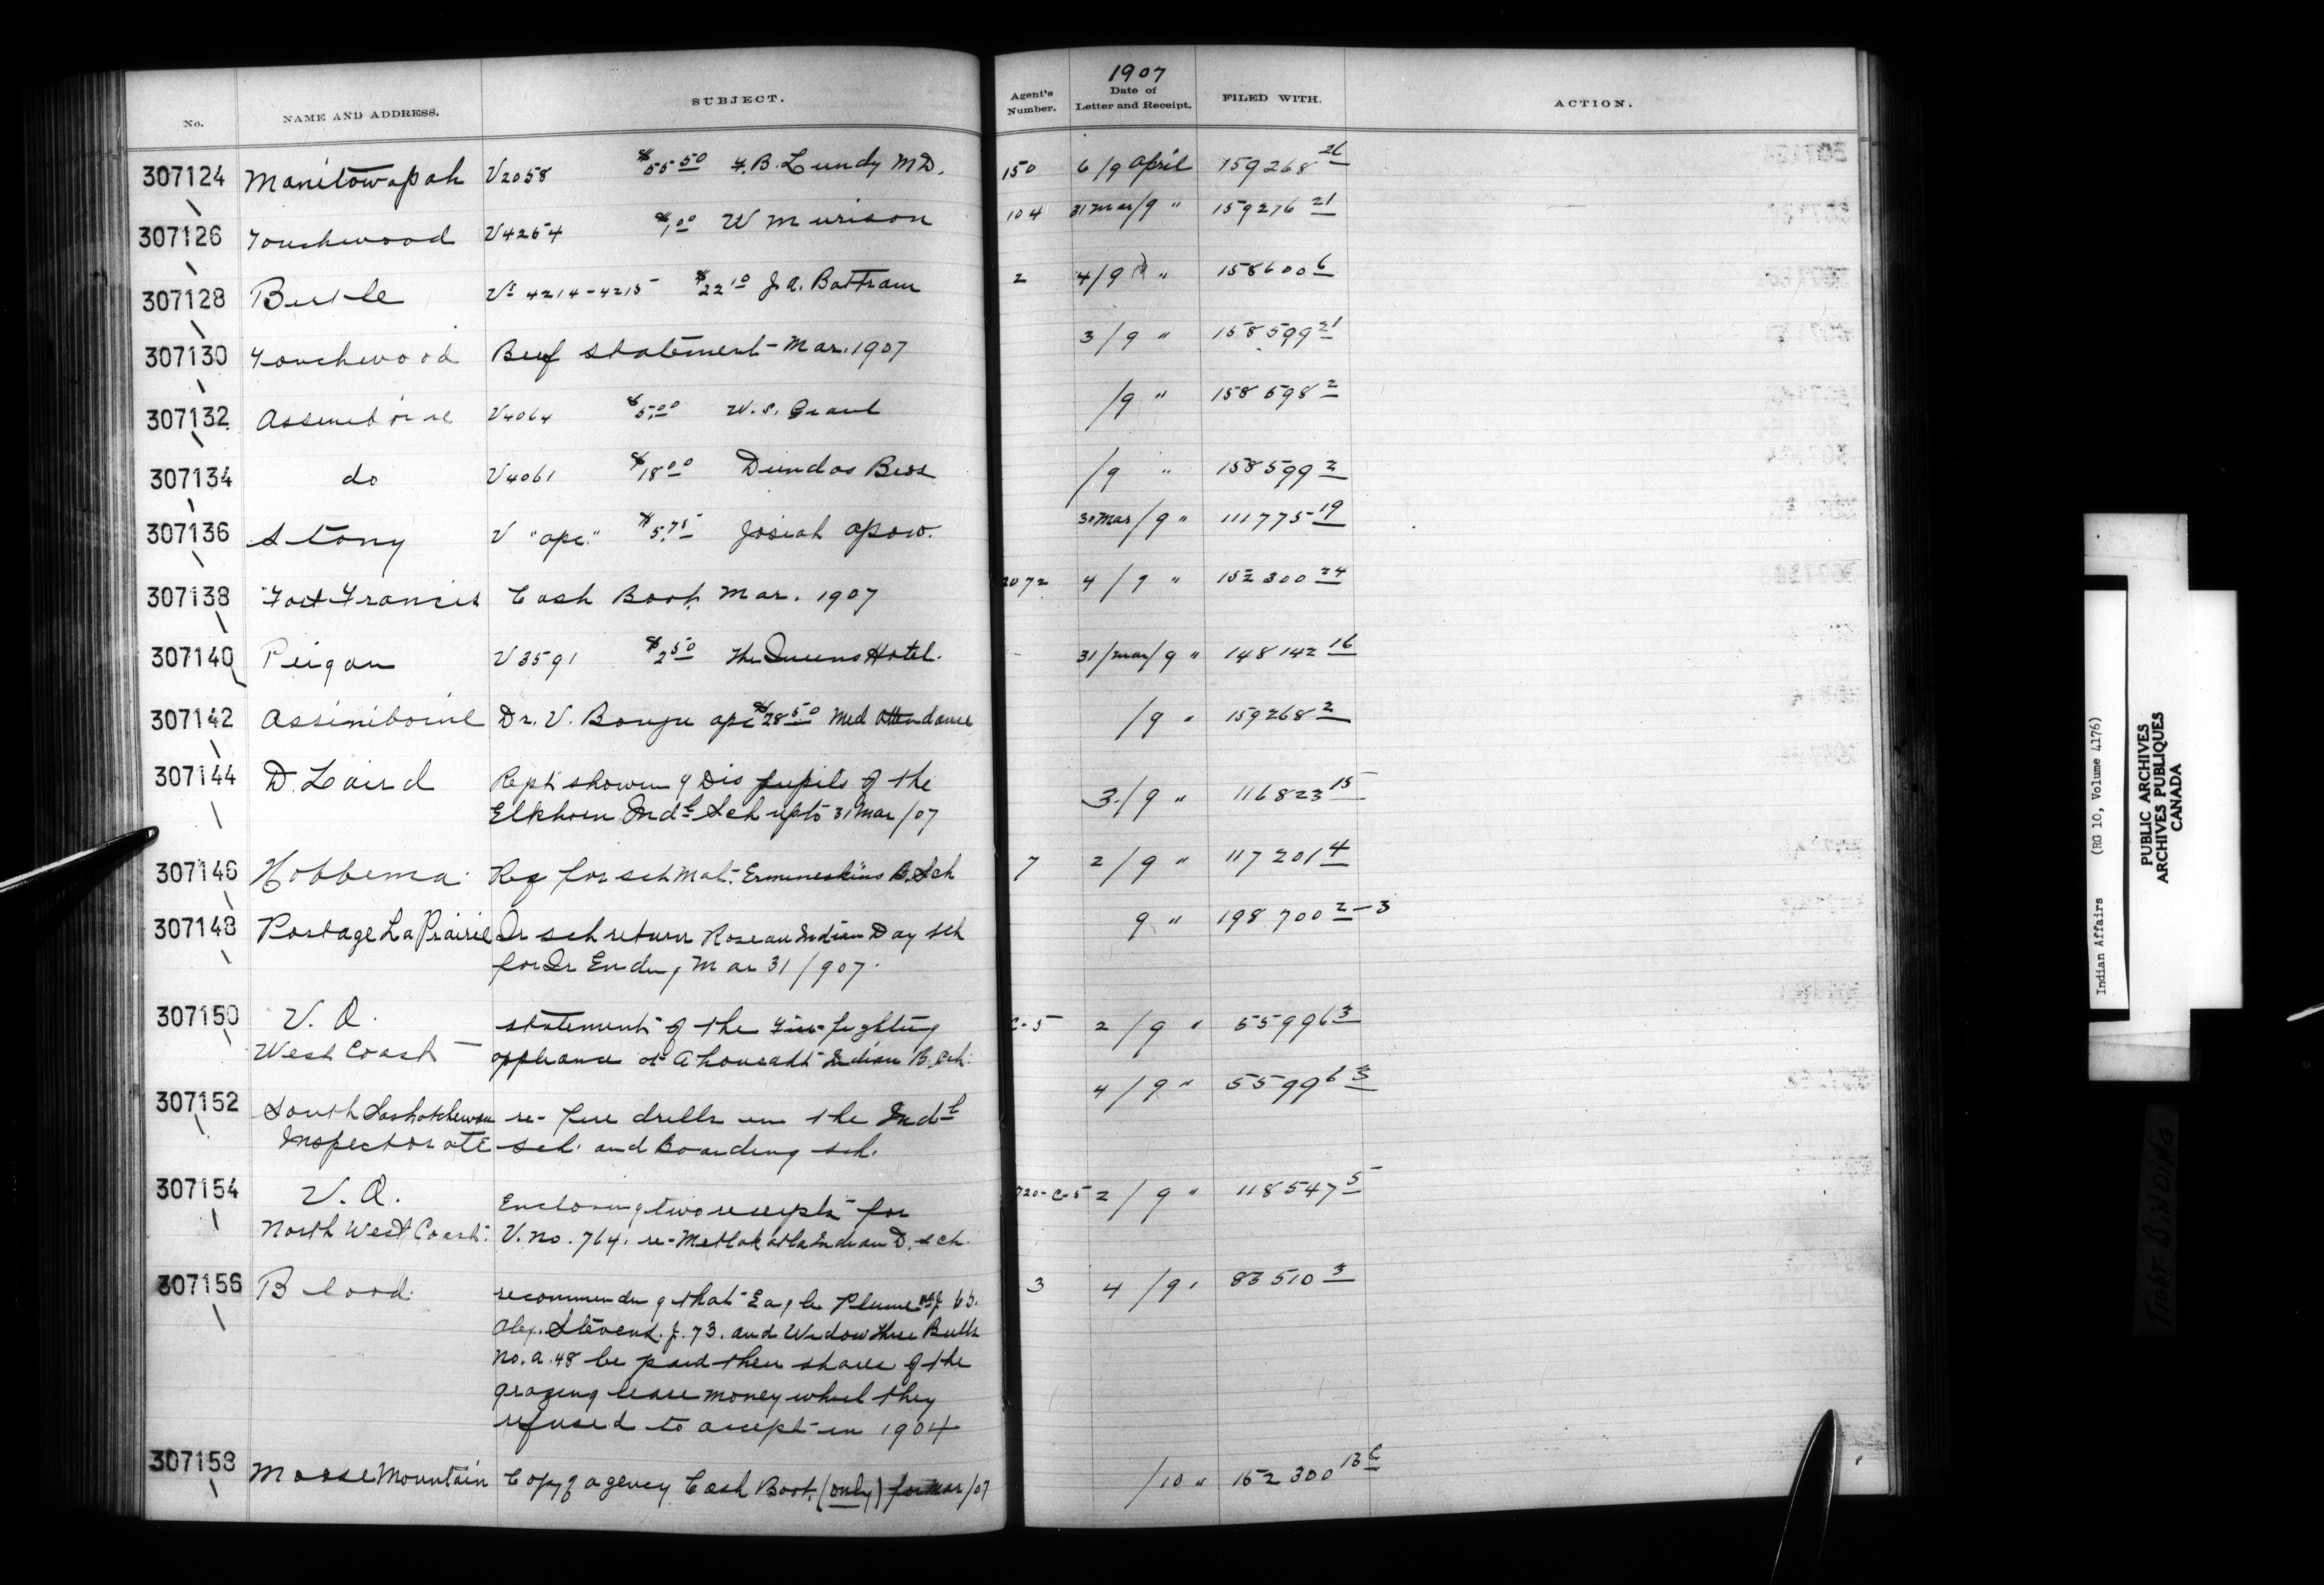 No. NAME AND ADDRESS. SUBJECT. Agent's Number. 1907 Date of Letter and Receipt. FILED WITH. ACTION.
307124 Manitowapah V2058 $55.50 F.B. Lundy MD. 150 6/9 April 159268 26
307126 Touchwood V4254 $1.00 W Murison 104 31 Mar/9 " 159276 21
307128 Birtle Vs 4214-4215 $22.10 J.A. Battram 2 4/9 " 158600 6
307130 Touchwood Beef statement - Mar. 1907 3/9 " 158599 21
307132 Assiniboine V4064 $5.00 W.S. Grant /9 " 158598 2
307134 do V4061 $18.00 Dundas Bros /9 " 158599 2
307136 Stony V "apc." $5.75 Josiah Apow. 30 Mar/9 " 111775 19
307138 Fort Francis Cash Book Mar. 1907 2072 4/9 " 152300 24
307140 Peigan V3591 $2.50 The Queens Hotel. 31/Mar/9 " 148142 16
307142 Assiniboine Dr. V. apc $28.50 Med Attendance /9 " 159268 2
307144 D. Laird Rept showing Dis pupils of the
Elkhorn Indl Sch up to 31 Mar/07 3/9 " 116823 15
307146 Hobbema Req for sch Mat. Ermineskins B. Sch 7 2/9 " 117201 4
307148 Portage La Prairie Qr sch return Roseau Indian Day Sch
for Qr Ending Mar 31/907. 9 " 198700 2-3
307150 V. O.
West Coast statement of the Fire fighting
appliance at Ahousaht Indian B. Sch. C-5 2/9 " 55996 3
307152 South Saskatchewan
Inspectorate re- fire drills in the Indl
sch. and Boarding sch. 4/9 " 55996 3
307154 V. O.
North West Coast. Enclosing two receipts for
V. No. 764. re- Metlakatla Indian D. sch. 720-C-5 2/9 " 118547 5
307156 Blood recommending that Eagle Plume 63.
Alex. Stevens. J. 73. and Widow Three Bulls
No. a. 48 be paid their shares of the
grazing lease money which they
refused to accept in 1904 3 4/9 " 83510 3
307158 Moose Mountain Copy of agency Cash Book (only) for Mar/07 /10 " 152300 13 C
Indian Affairs (RG 10, Volume 4176)
PUBLIC ARCHIVES
ARCHIVES PUBLIQUES
CANADA
TIGHT BINDING